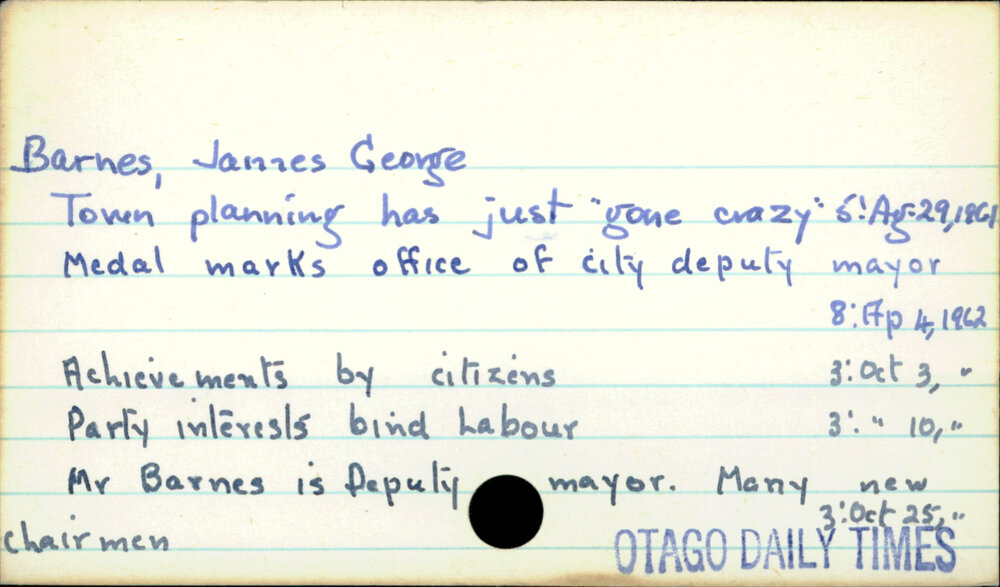 Barnes, James George
Town planning has just "gone crazy" 5:Ag 29,1961
Medal marks office of city deputy mayor
8:Ap 4,1962
Achievements by citizens 3:Oct 3, "
Party interests bind Labour 3: " 10, "
Mr Barnes is Deputy mayor. Many new
3:Oct 25, "
chairmen
OTAGO DAILY TIMES